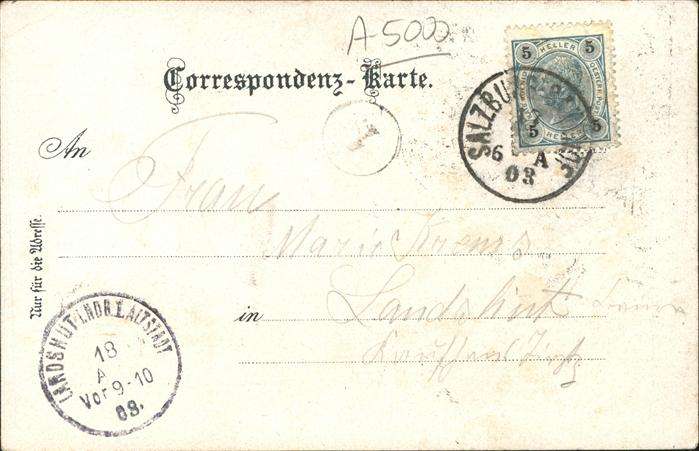 A-5000
5 HELLER 5
5 HELLER 5
Correspondenz-Karte.
SALZBURG
6 A
03
1
An
Frau
Marie Krenz
in Landshut
Nur für die Adresse.
LANDSHUT (NDB.) I. ALTSTADT
18
A
Vor 9-10
03.